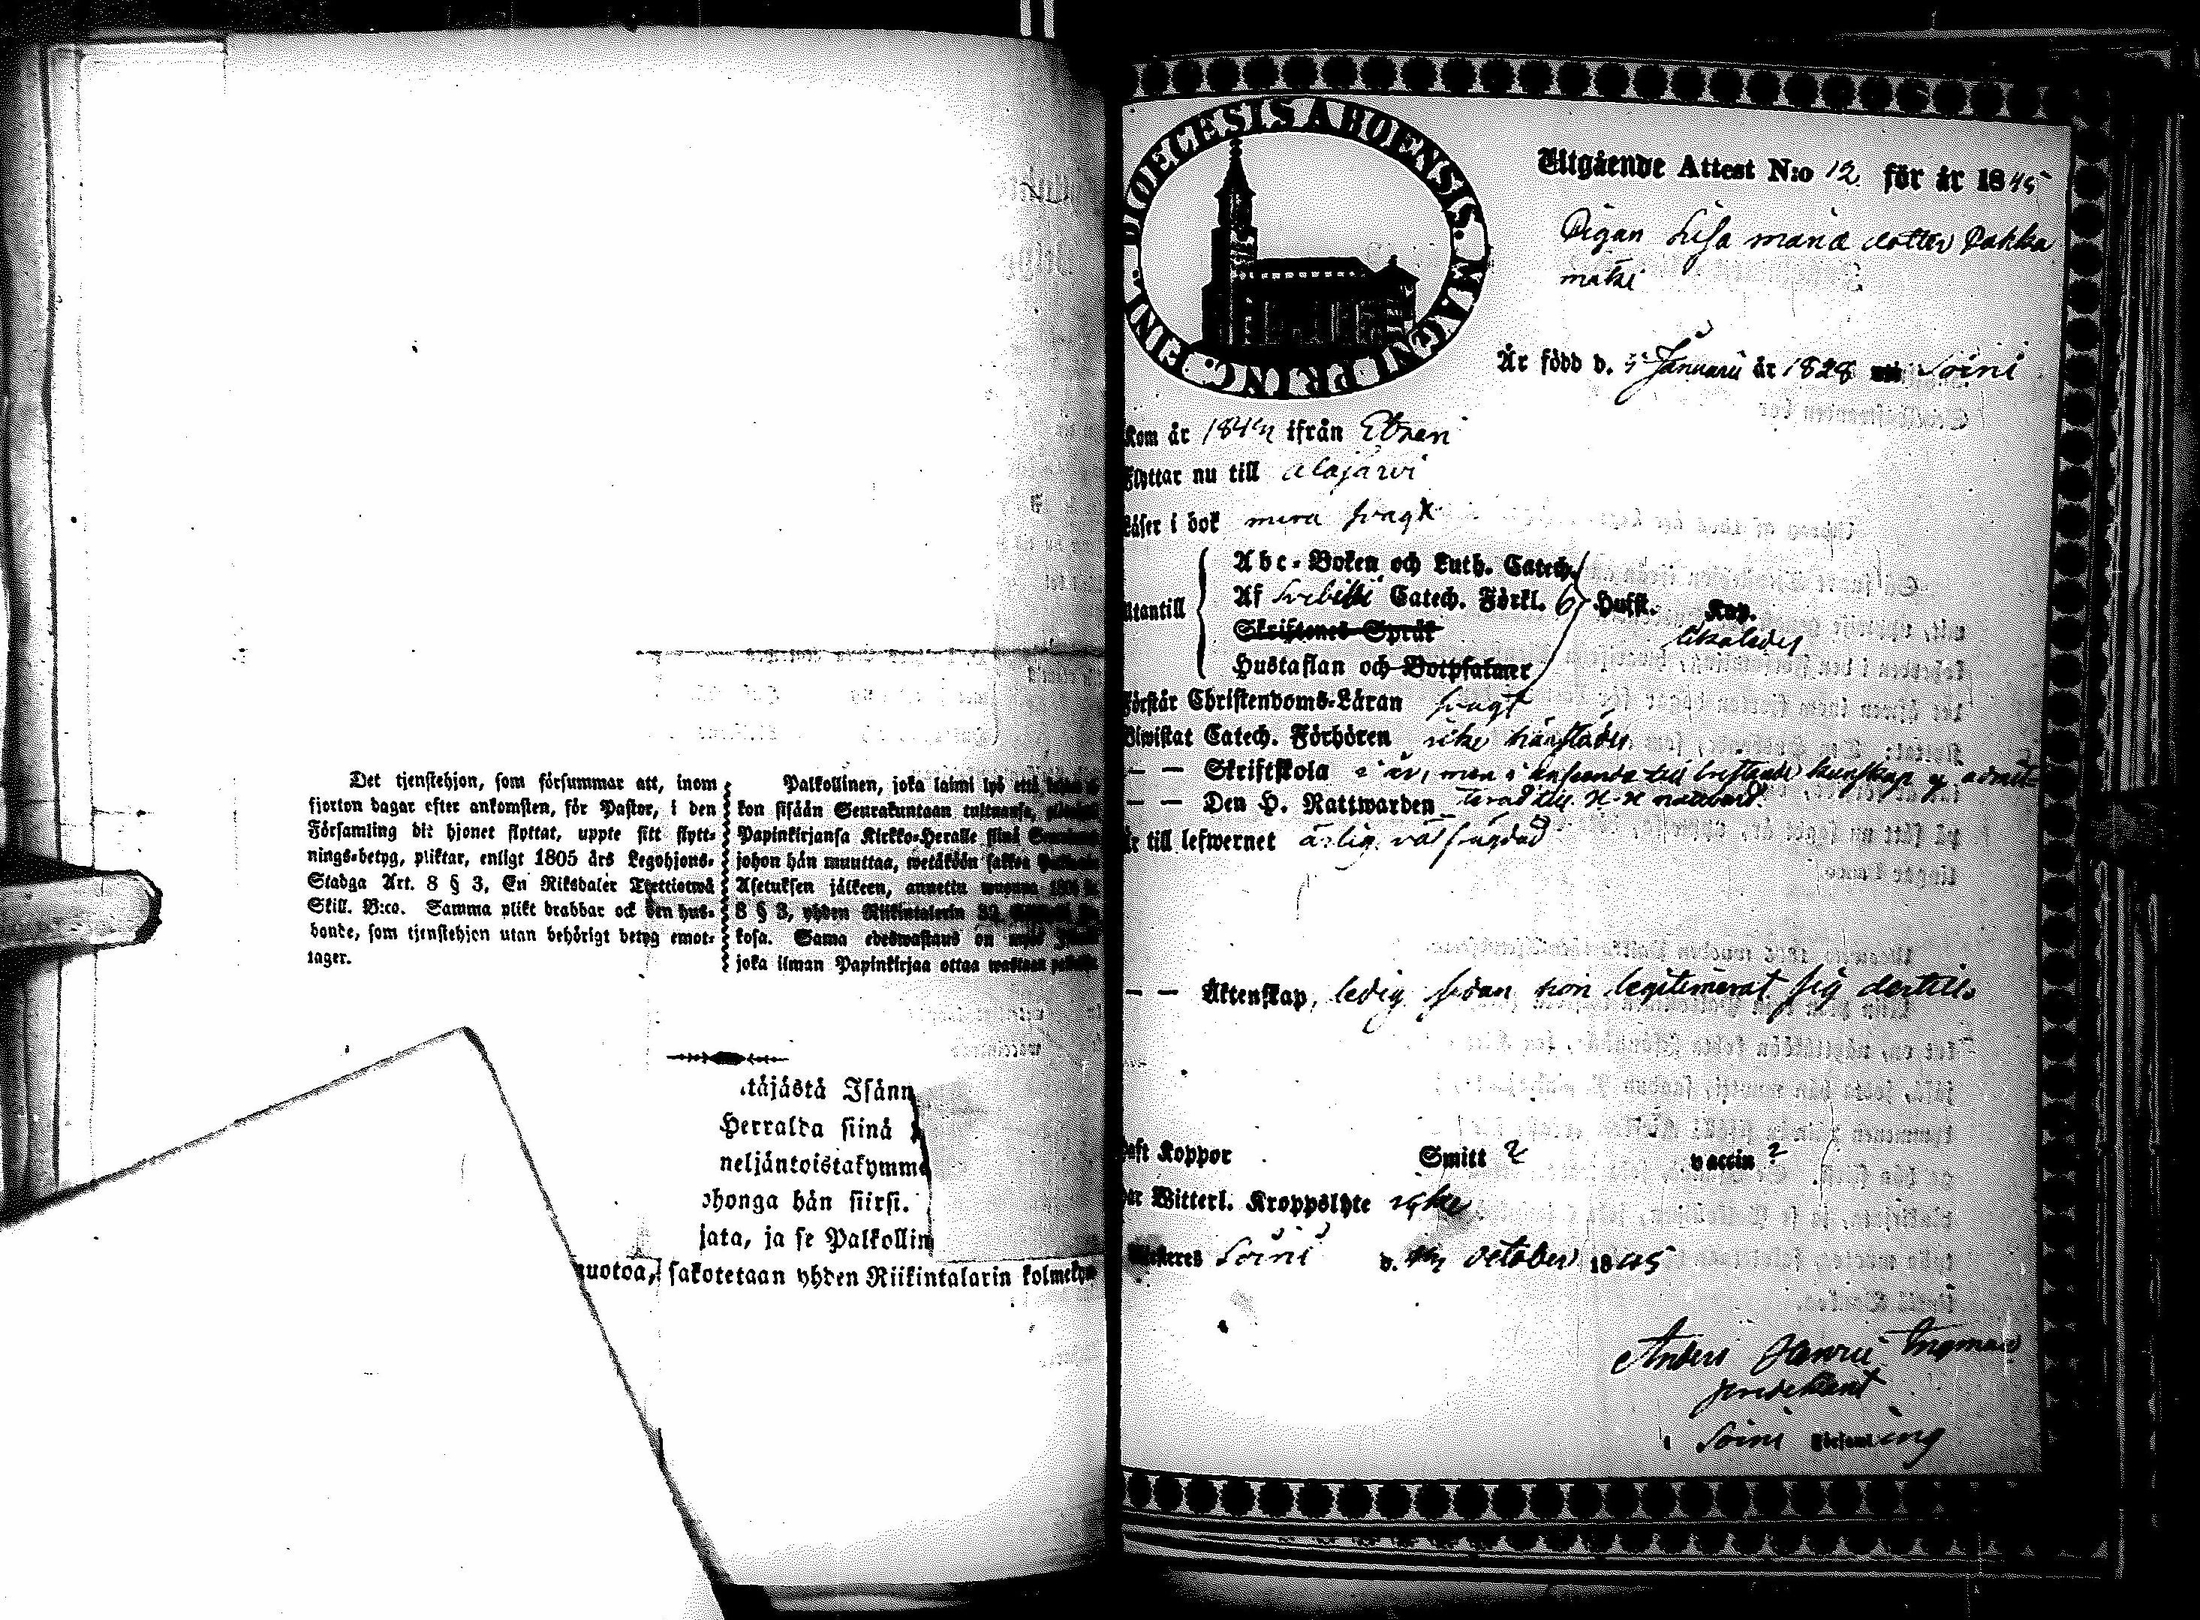 Det tjenstehjon, som försummar att, inom
fjorton dagar efter ankomsten, för Pastor, i den
Församling dit hjonet flyttat, uppte sitt flytt-
nings-betyg, pliktar, enligt 1805 års Legohjons-
Stadga Art. 8 § 3, En Riksdaler Trettiotwå
Skill. B:co. Samma plikt drabbar ock den hus-
bonde, som tjenstehjon utan behörigt betyg emot-
tager.
Palkollinen, joka laimi lyö että
kon sisään Seurakuntaan tultuansa,
Papinkirjansa Kirkko-Heralle siinä
johon hän muuttaa, wetäköön sakkoa
Asetuksen jälkeen, annettu wuonna
8 § 3, yhden Riikintalerin 32
kosa. Sama edeswastaus on myös
joka ilman Papinkirjaa ottaa wastaan
täjästä Isänn
Herralda siinä
neljäntoistakymme
ohonga hän siirsi.
jata, ja se Palkollin
uotoa, sakotetaan yhden Riikintalarin kolmeky
DIOECESIS ABOENSIS. MAGNI PRINC. FINL.
Utgående Attest N:o 12 för år 1845
Pigan Lisa Maria dotter Pakka
matki
Är född d. 5 Januarii år 1828 uti Soini
Kom år 184 ifrån Etseri
Flyttar nu till alajärvi
Läser i bok mera svagt
Utantill
Abc-Boken och Luth. Catech.
Af Svebilii Catech. Förkl. Hufst. Kap.
Skriftenes Språk
Hustaflan och Botpsalmer
Förstår Christendoms-Läran svagt
Biwistat Catech. Förhören icke
— — Skriftskola i år, men i anseende till bristande kunskap ej admit-
— — Den H. Nattwarden terad till H. H. nattvard.
Är till lefwernet ärlig. välfrägdad
— — Äktenskap, ledig, sedan hon legitimerat sig dertill.
Haft Koppor Smitt ? vaccin ?
Har Witterl. Kroppslyte icke
Soini d. October 1845
Anders Henric Ingman
predikant
i Soini Församling